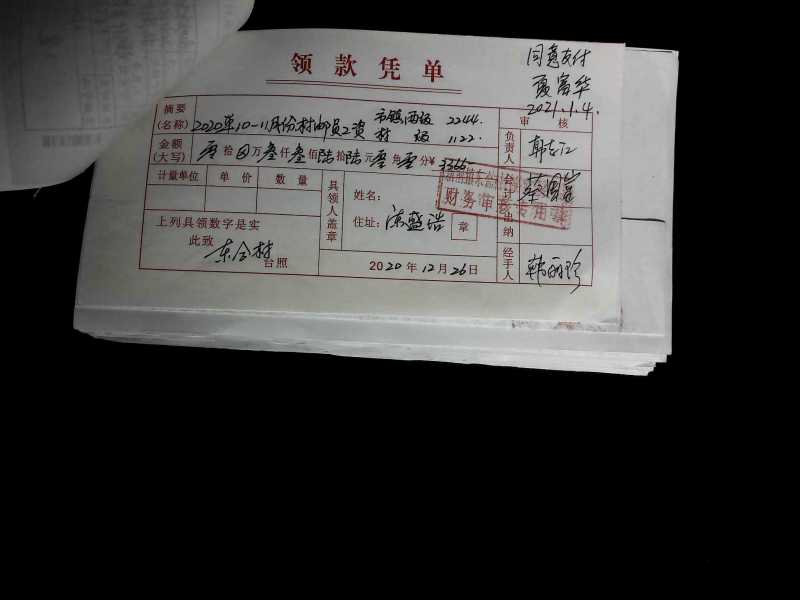 领款凭单
同意支付
2021.1.4.
摘要
(名称)
2020年10-11月份村邮员工资
市镇两级 2244.
村 级 1122.
审核
金额
(大写)
零拾 万叁仟叁佰陆拾陆元零角零分¥3366
负责人
计量单位 单价 数量
具领人盖章
姓名:
住址:
章
会计
财务审核专用章
出纳
上列具领数字是实
此致
东合村台照
2020年12月26日
经手人
韩丽珍